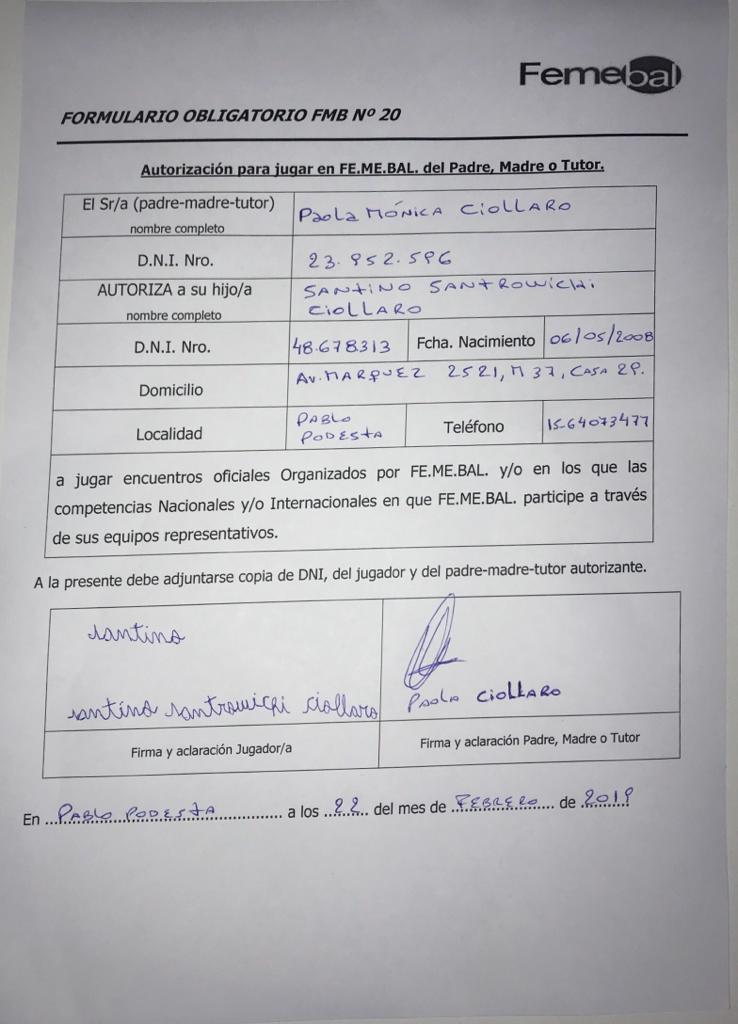 Femebal
FORMULARIO OBLIGATORIO FMB Nº 20
Autorización para jugar en FE.ME.BAL. del Padre, Madre o Tutor.
El Sr/a (padre-madre-tutor)
nombre completo
Paola MÓNICA CIOLLARO
D.N.I. Nro.
23.952.596
AUTORIZA a su hijo/a
nombre completo
SANTINO SANTROWICHI
CIOLLARO
D.N.I. Nro.
48.678313
Fcha. Nacimiento
06/05/2008
Domicilio
AV. MARQUEZ 2521, M 37, CASA 29.
Localidad
PABLO
PODESTA
Teléfono
15-64073477
a jugar encuentros oficiales Organizados por FE.ME.BAL. y/o en los que las
competencias Nacionales y/o Internacionales en que FE.ME.BAL. participe a través
de sus equipos representativos.
A la presente debe adjuntarse copia de DNI, del jugador y del padre-madre-tutor autorizante.
santino
santino santrowichi ciollaro
PAOLA CIOLLARO
Firma y aclaración Jugador/a
Firma y aclaración Padre, Madre o Tutor
En PABLO PODESTA a los 22 del mes de FEBRERO de 2019